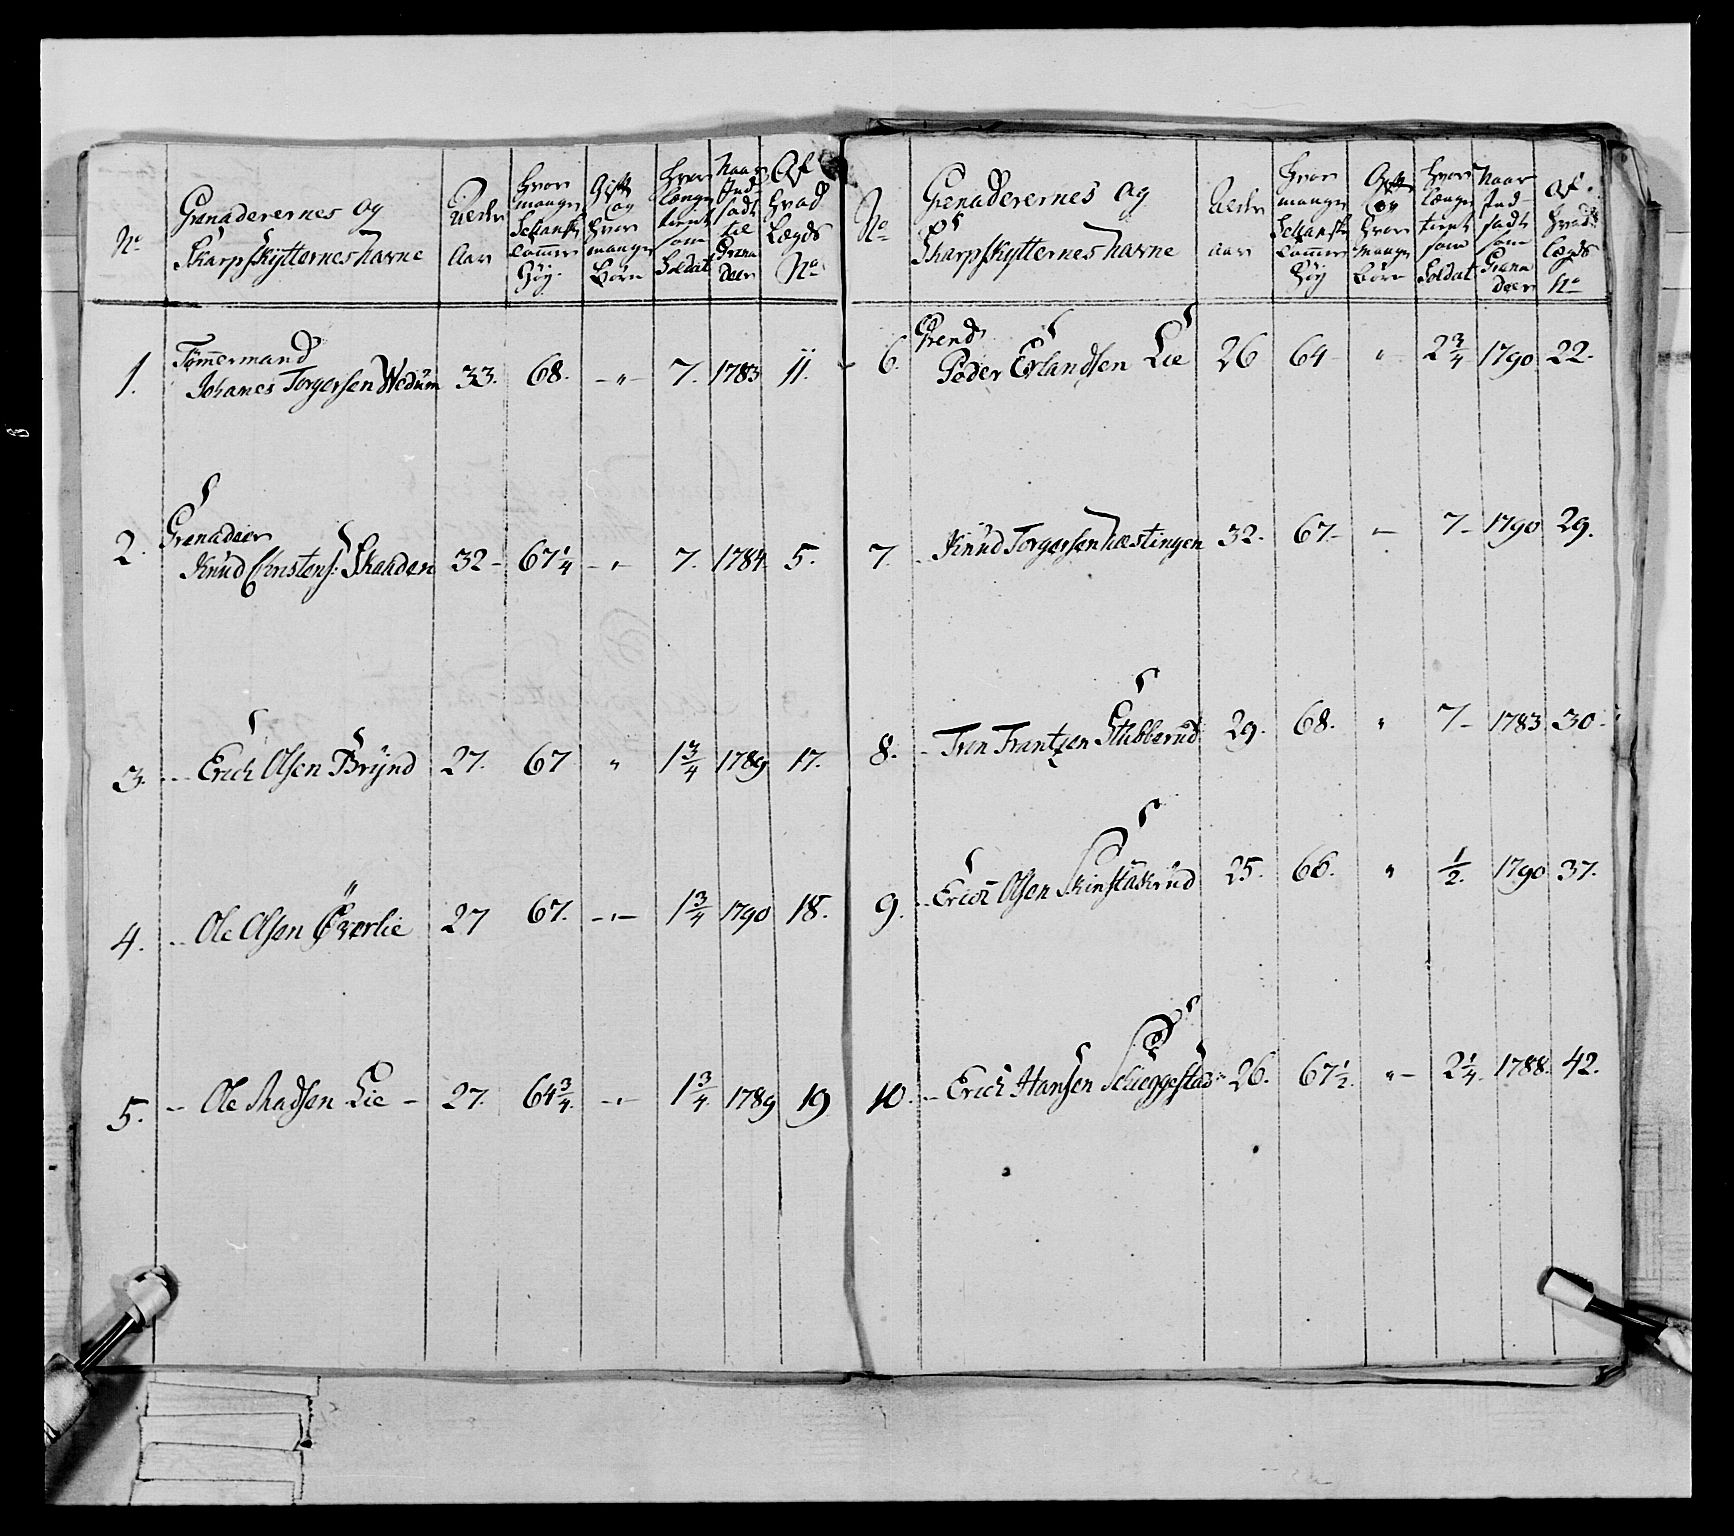 No
Grenaderernes Og
Skarpskytternes Navne
Alder
Aar
Hvor
mange
Schansk
tommer
Høy
Gift
og
Hvor
mange
Børn
Hvor
længe
tient
som
Soldat
Naar
Ind-
sadt
til
Grena
deer
Af
Hvad
Lægds
No
1.
Tømmermand
Johanes Torgersen Wedum 33. 68. - " - 7. 1783 11.
2.
Grenadeer
Knud Christens: Skaaden 32 - 67 1/4 - " - 7. 1784 5.
3. -- Erich Olsen Brynd 27. 67 " 1 3/4 1789 17.
4. -- Ole Olsen Øverlie 27 67. - " - 1 3/4 1790 18.
5. -- Ole Madsen Lie - 27. 64 3/4. - " - 1 3/4 1789 19
No
Grenaderernes Og
Skarpskytternes Navne
Alder
aar
Hvor
mange
Schansk
tommer
Høy
Gift
og
Hvor
mange
Børn
Hvor
længe
tient
som
Soldat
Naar
Ind-
sadt
som
Grena
deer
Af
Hvad
Lægds
No
6.
Grend
Peder Erlandsen Lie 26 64 - " 2 3/4 1790 22.
7. - Knud Torgersen Næstingen 32. 67 - - 7 - 1790 29.
8. - Iven Frantzen Stubberud 29. 68. " 7 - 1783 30 -
9. -- Erich Olsen 25. 66. " 1/2. 1790 37.
10. -- Erich Hansen Scheggestad 26. 67 1/2. " - 2 1/4. 1788. 42.